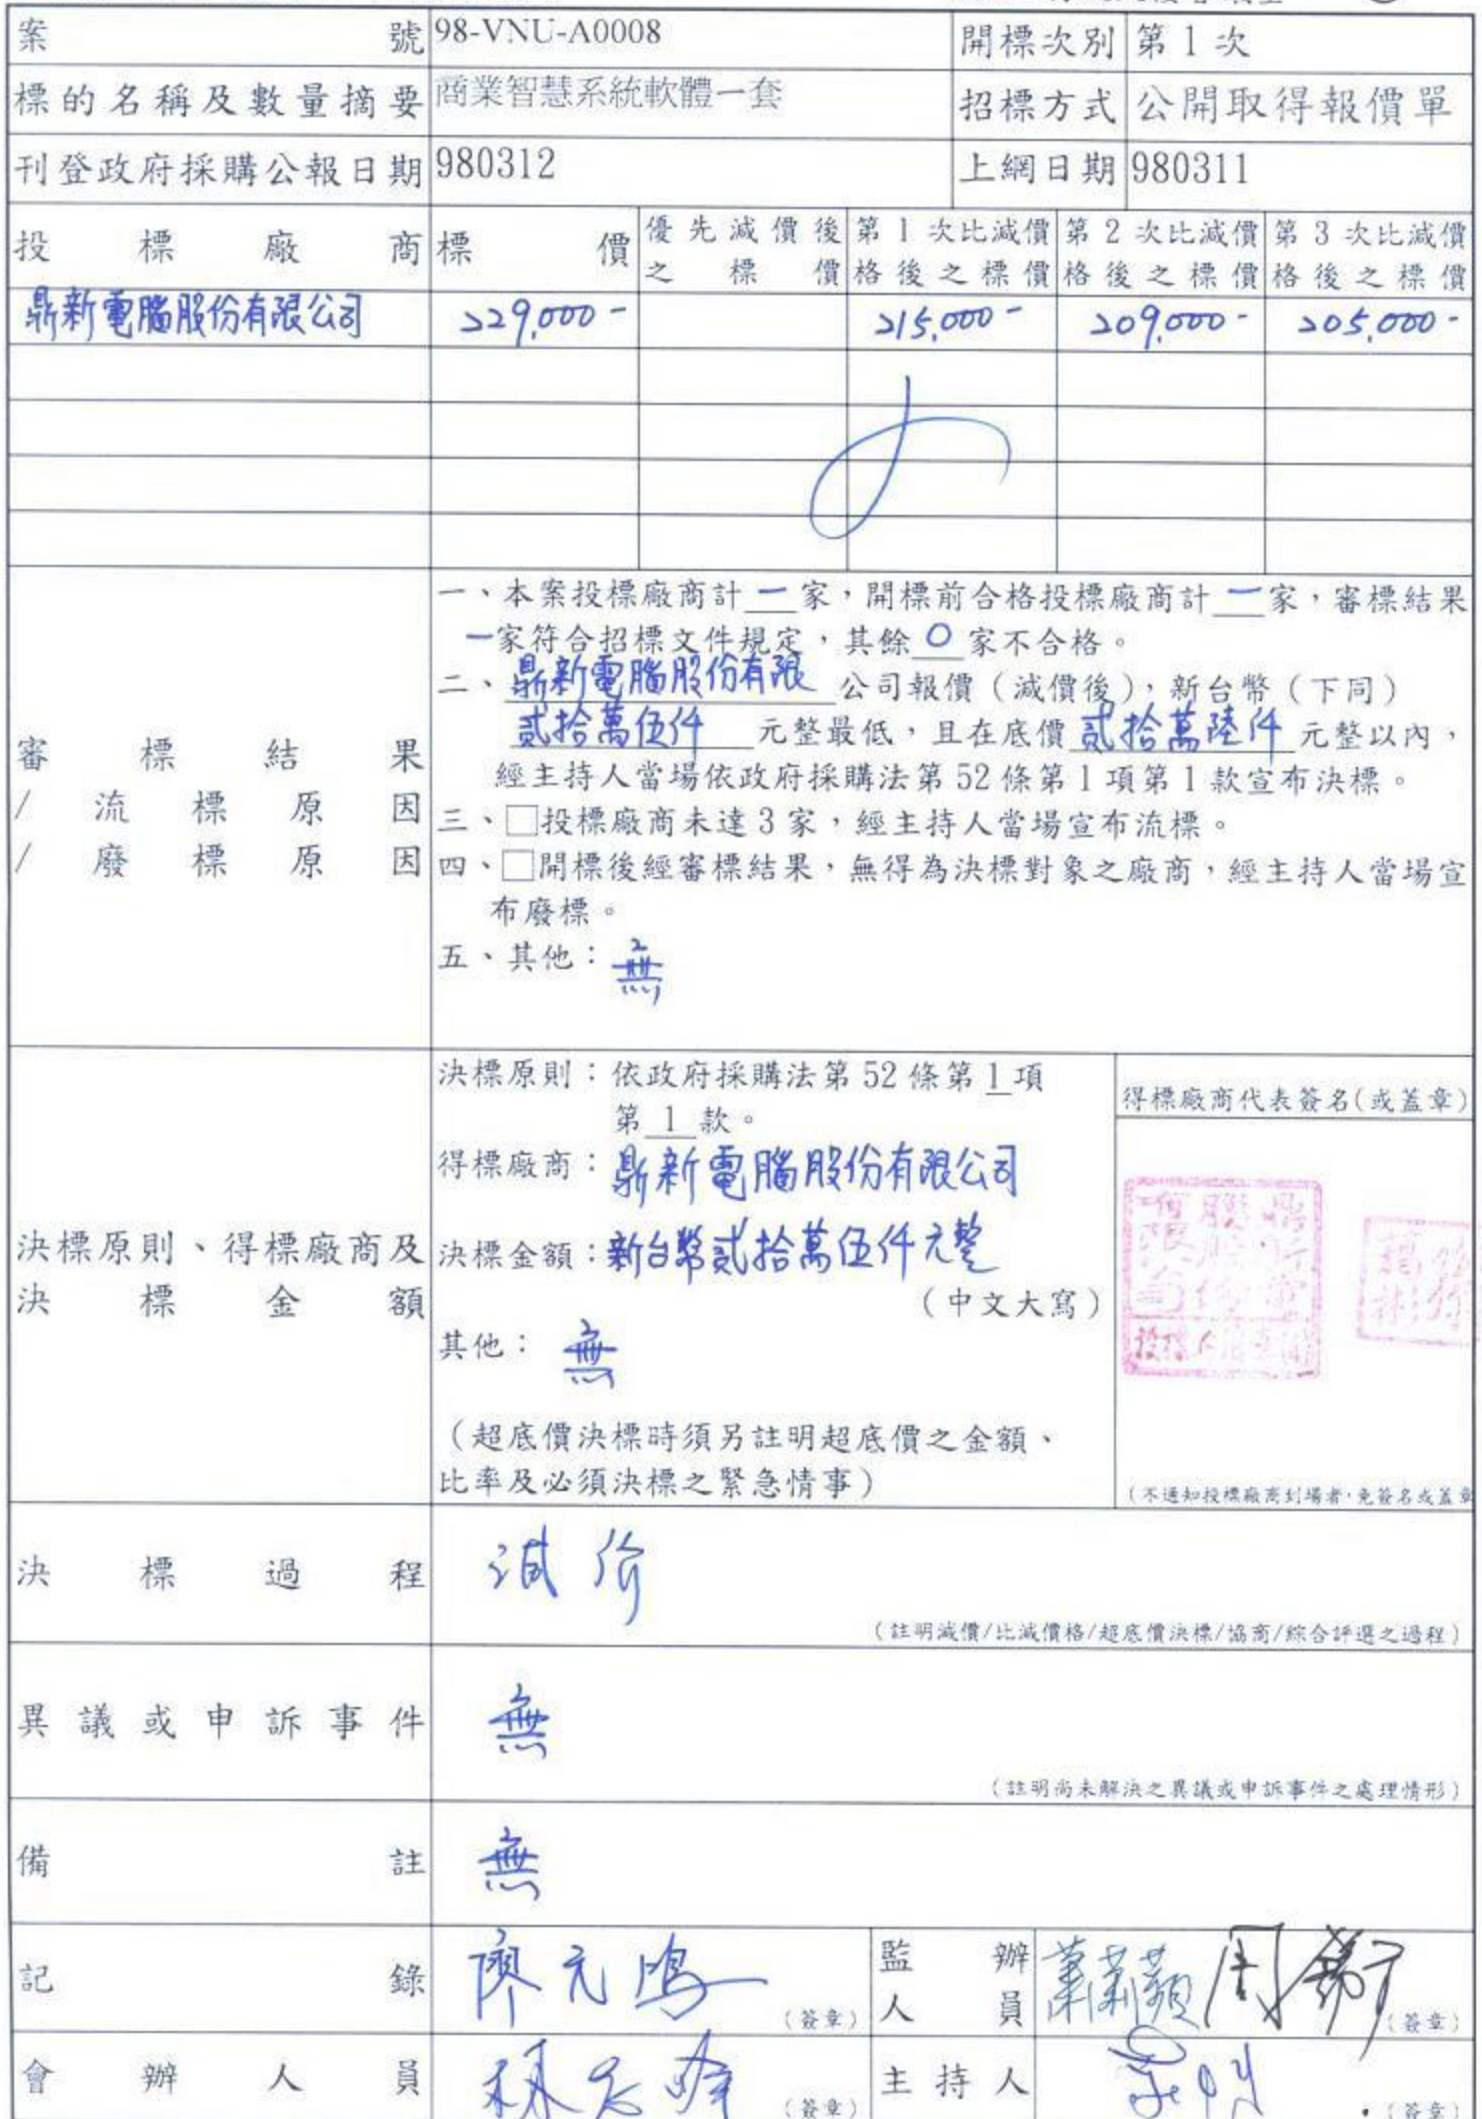 案號 98-VNU-A0008 開標次別 第 1 次
標的名稱及數量摘要 商業智慧系統軟體一套 招標方式 公開取得報價單
刊登政府採購公報日期 980312 上網日期 980311
投標廠商 標價 優先減價後之標價 第 1 次比減價格後之標價 第 2 次比減價格後之標價 第 3 次比減價格後之標價
鼎新電腦股份有限公司 229,000- 215,000- 209,000- 205,000-
審標結果/流標原因/廢標原因
一、本案投標廠商計一家，開標前合格投標廠商計一家，審標結果
一家符合招標文件規定，其餘 0 家不合格。
二、鼎新電腦股份有限公司報價（減價後），新台幣（下同）
貳拾萬伍仟元整最低，且在底價貳拾萬陸仟元整以內，
經主持人當場依政府採購法第 52 條第 1 項第 1 款宣布決標。
三、□投標廠商未達 3 家，經主持人當場宣布流標。
四、□開標後經審標結果，無得為決標對象之廠商，經主持人當場宣
布廢標。
五、其他：無
決標原則、得標廠商及決標金額
決標原則：依政府採購法第 52 條第 1 項
第 1 款。
得標廠商：鼎新電腦股份有限公司
決標金額：新台幣貳拾萬伍仟元整
（中文大寫）
其他：無
（超底價決標時須另註明超底價之金額、
比率及必須決標之緊急情事）
得標廠商代表簽名(或蓋章)
（不通知投標廠商到場者，免簽名或蓋章
決標過程 減價
（註明減價/比減價格/超底價決標/協商/綜合評選之過程）
異議或申訴事件 無
（註明尚未解決之異議或申訴事件之處理情形）
備註 無
記錄 廖元鴻 （簽章） 監辦人員 （簽章）
會辦人員 （簽章） 主持人 （簽章）